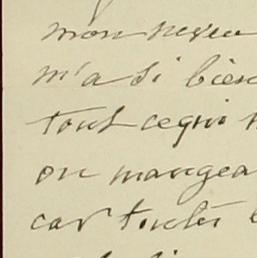 mon neveu
m'a si bien
tout cequi
on mangea
car toutes